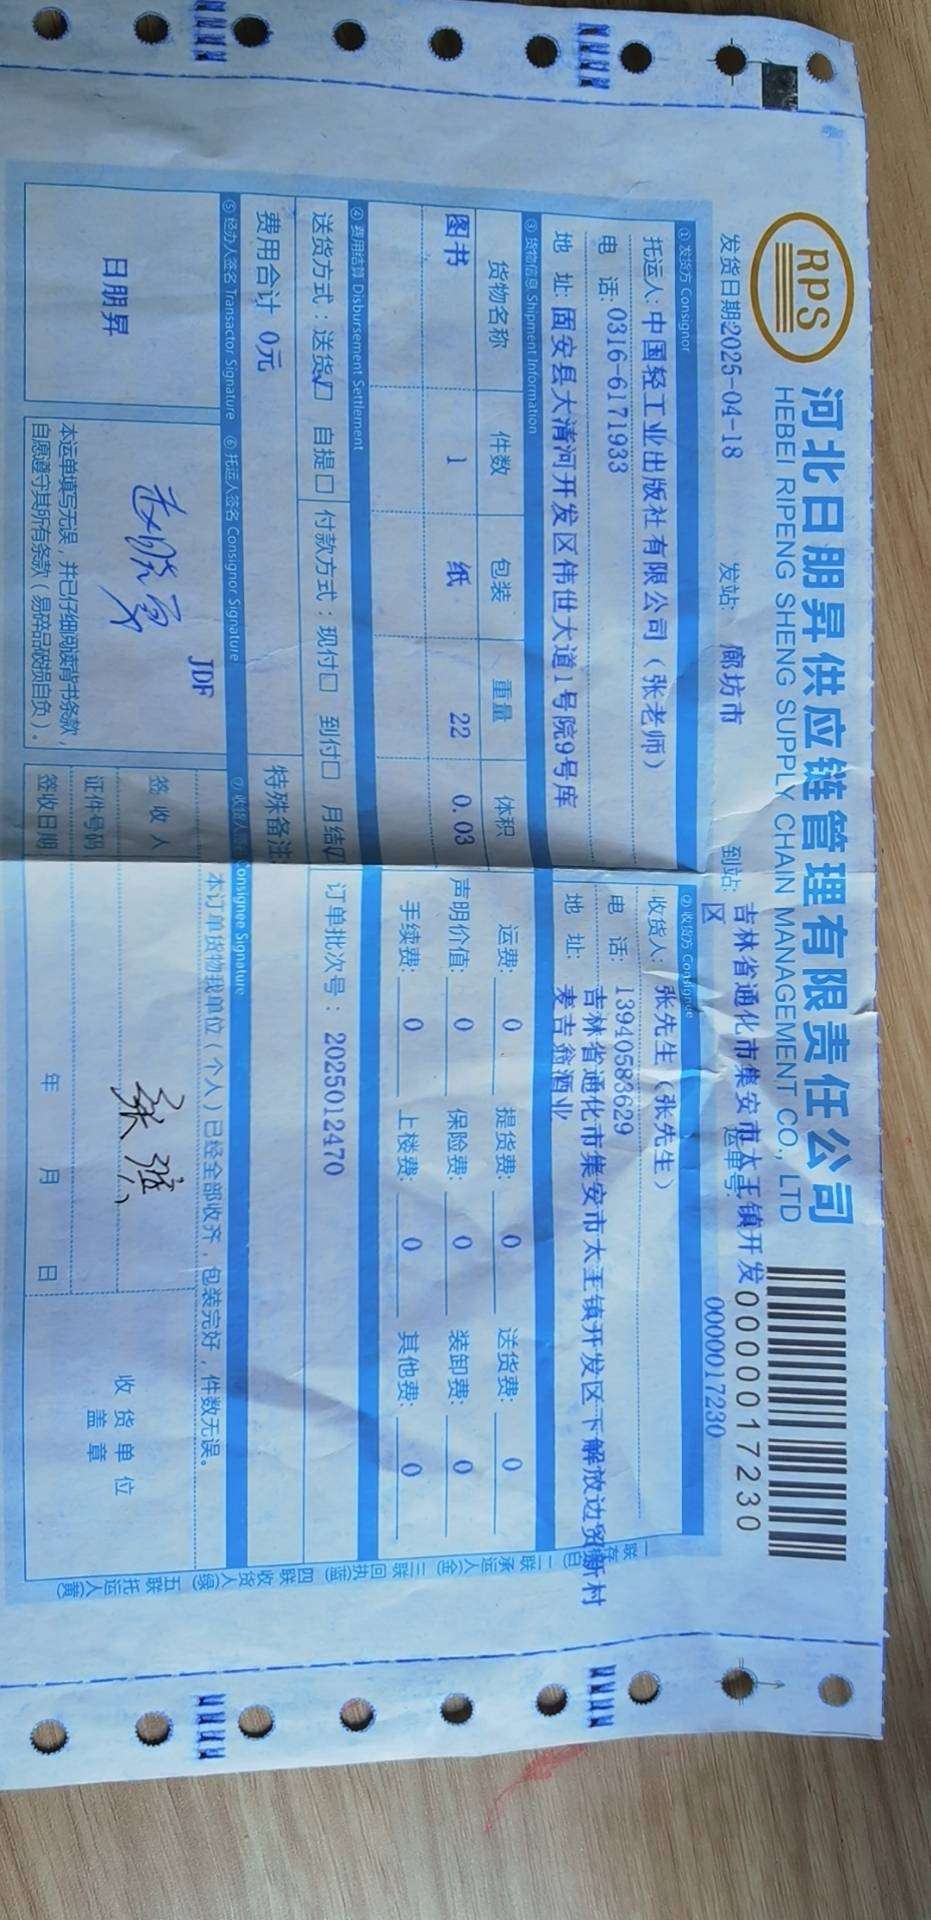 RPS
河北日朋昇供应链管理有限责任公司
HEBEI RIPENG SHENG SUPPLY CHAIN MANAGEMENT CO., LTD
0000017230
发货日期:2025-04-18 发站: 廊坊市 到站: 吉林省通化市集安市太王镇开发区 运单号: 0000017230
① 发货方 Consignor
② 收货方 Consignee
托运人: 中国轻工业出版社有限公司（张老师）
收货人: 张先生（张先生）
电 话: 0316-6171933
电 话: 13940583629
地 址: 固安县大清河开发区伟世大道1号院9号库
地 址: 吉林省通化市集安市太王镇开发区下解放边贸新村
麦吉翁酒业
③ 货物信息 Shipment Information
货物名称 件数 包装 重量 体积
运费: 0 提货费: 0 送货费: 0
图书 1 纸 22 0.03
声明价值: 0 保险费: 0 装卸费: 0
手续费: 0 上楼费: 0 其他费: 0
④ 费用结算 Disbursement Settlement
送货方式：送货☑ 自提□ 付款方式：现付□ 到付□ 月结☑ 订单批次号： 2025012470
费用合计 0元 特殊备注
⑤ 经办人签名 Transactor Signature ⑥ 托运人签名 Consignor Signature ⑦ 收货人 Consignee Signature
本订单货物我单位（个人）已经全部收齐，包装完好，件数无误。
JDF
日朋昇
签 收 人
张
收 货 单 位
盖 章
证件号码
本运单填写无误，并已仔细阅读背书条款，
自愿遵守其所有条款（易碎品破损自负）。
签收日期 年 月 日
一联存根(白) 二联承运人(金) 三联回执(蓝) 四联收货人(绿) 五联托运人(黄)